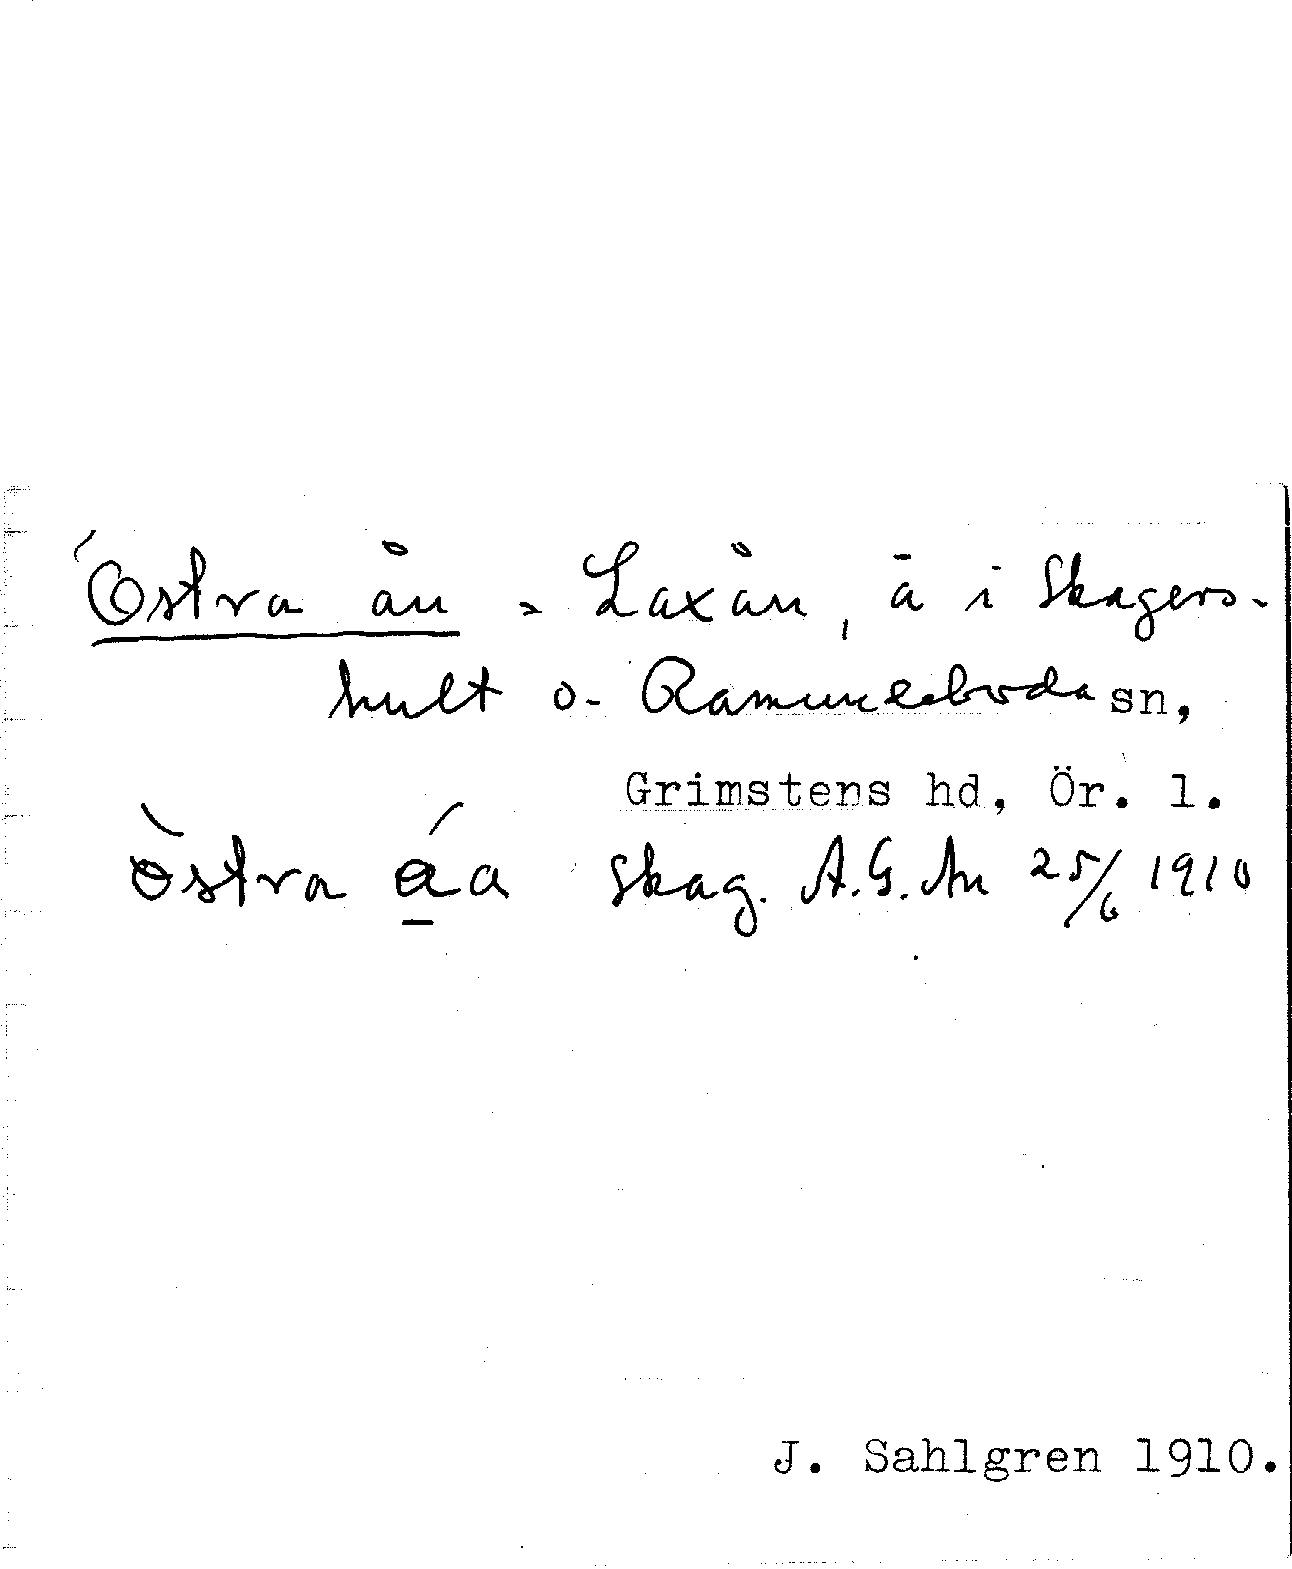 Östra ån = Laxån, å i Skagers-
hult o. Ramundeboda sn,
Grimstens hd, Ör. l.
östra åa Skag. A.G. 25/6 1910
J. Sahlgren 1910.